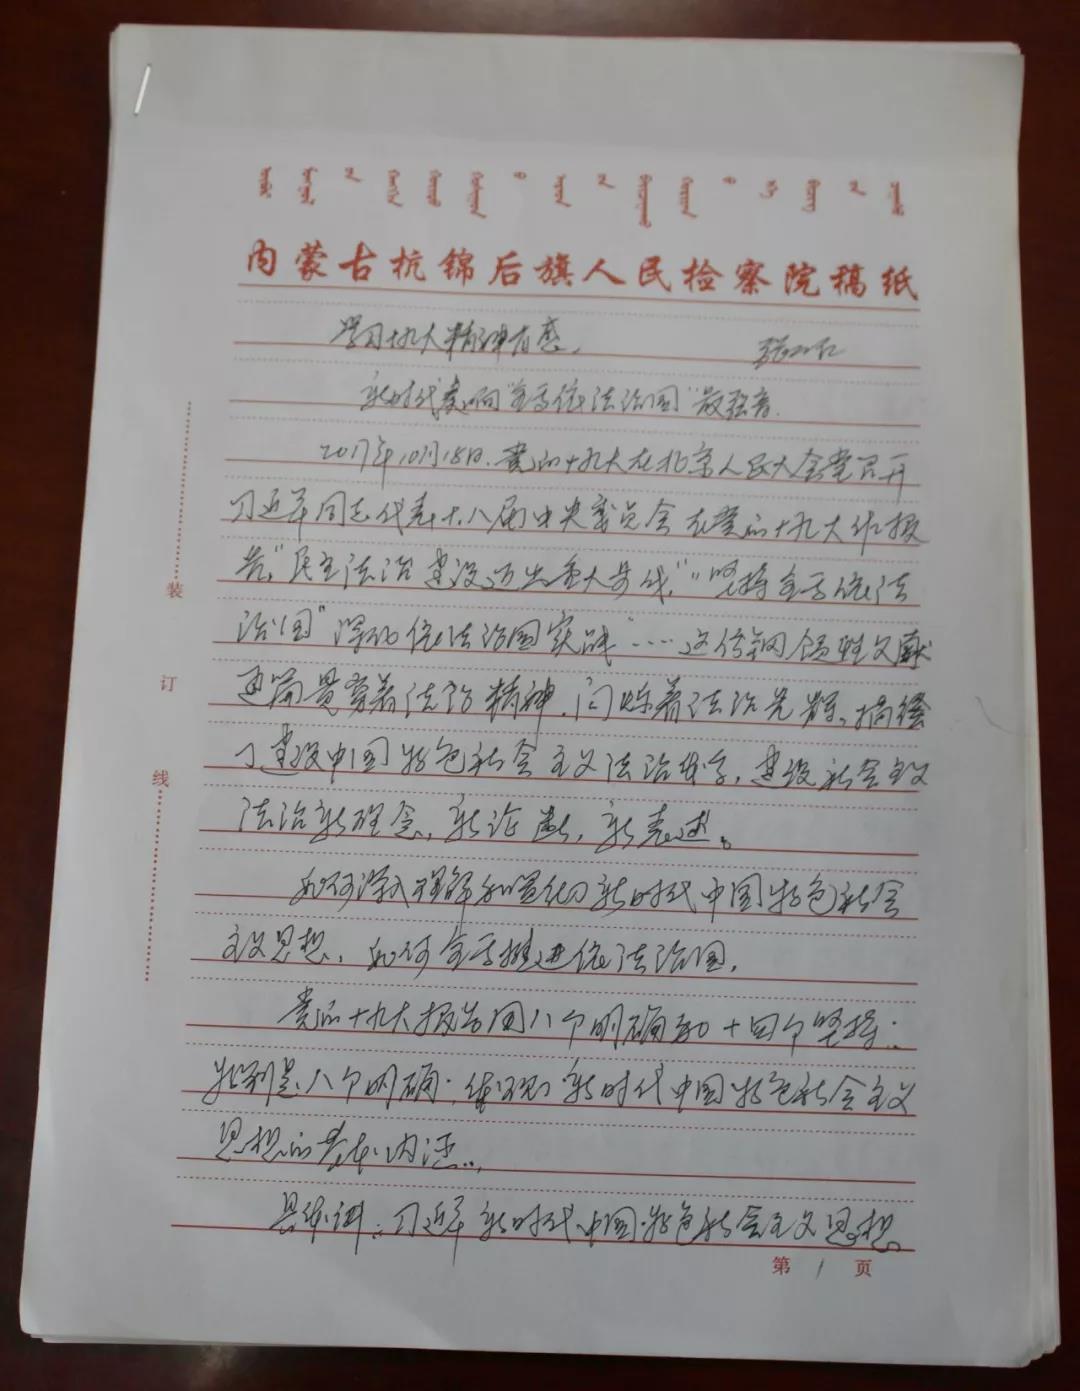 内蒙古杭锦后旗人民检察院稿纸
学习十九大精神有感。
新时代奏响“全面依法治国”最强音。
2017年10月18日、党的十九大在北京人民大会堂召开
习近平同志代表十八届中央委员会在党的十九大作报
告，“民主法治建设迈出重大步伐，”“坚持全面依法
治国”“深化依法治国实践”……这份纲领性文献
通篇贯穿着法治精神、闪烁着法治光辉、描绘
了建设中国特色社会主义法治体系，建设社会主义
法治新理念，新论断，新表述。
如何深入理解和习新时代中国特色社会
主义思想，如何全面推进依法治国，
党的十九大报告用八个明确和十四个坚持：
特别是八个明确；体现新时代中国特色社会主义
思想的基本内涵..，
具体讲：习近平新时代中国特色社会主义思想
装
订
线
第1页